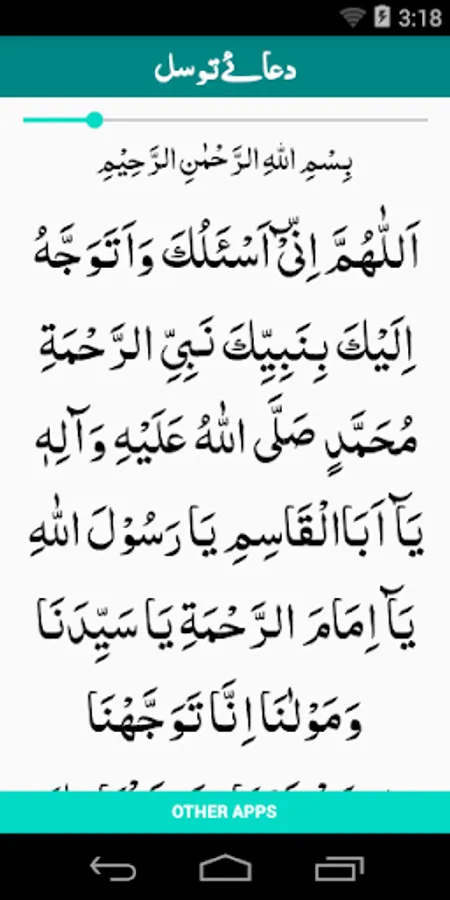 3:18
دعائے توسل
بِسْمِ اللهِ الرَّحْمٰنِ الرَّحِيْمِ
اَللّٰهُمَّ اِنِّىْٓ اَسْئَلُكَ وَاَتَوَجَّهُ
اِلَيْكَ بِنَبِيِّكَ نَبِيِّ الرَّحْمَةِ
مُحَمَّدٍ صَلَّى اللهُ عَلَيْهِ وَآلِهٖ
يَآ اَبَاالْقَاسِمِ يَا رَسُوْلَ اللهِ
يَآ اِمَامَ الرَّحْمَةِ يَا سَيِّدَنَا
وَمَوْلٰنَا اِنَّا تَوَجَّهْنَا
OTHER APPS